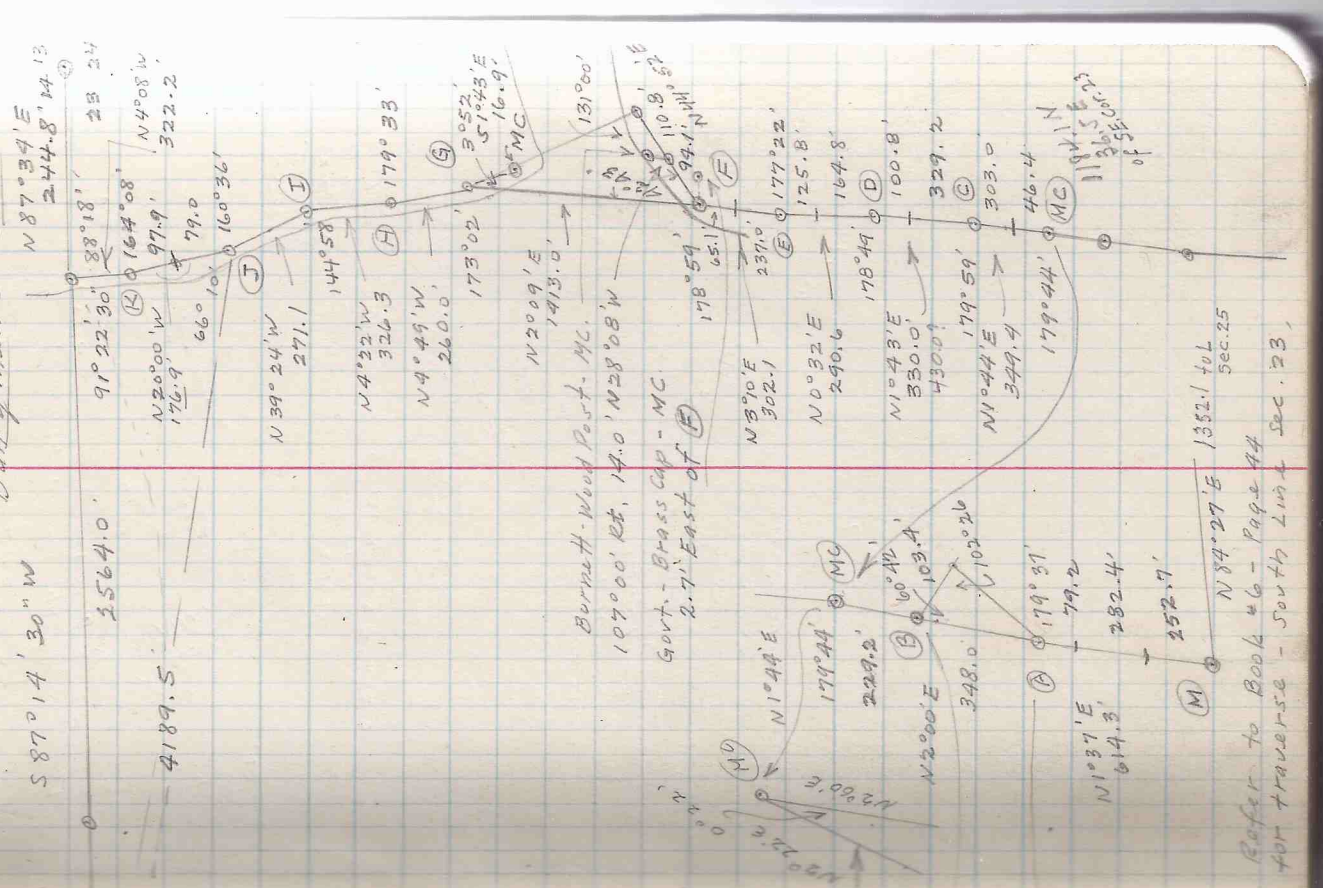 S 87° 14' 30" W
N 87° 34' E
244.8'
14 13
23 24
2564.0'
88° 18'
91° 22' 30"
K
164° 08'
N 4° 08' W
322.2'
97.9'
79.0
N 20° 00' W
176.9'
66° 10'
160° 36'
J
4189.5'
N 39° 24' W
271.1
I
144° 58'
N 4° 22' W
326.3
H
179° 33'
N 4° 49' W
260.0'
G
173° 02'
3° 52'
S 1° 43' E
16.9'
MC
N 2° 09' E
1413.0'
131° 00'
Burnett-Wood Post - MC.
107° 00' Rt, 14.0' N 28° 08' W
Govt. - Brass Cap - MC
2.7' East of F
110.8'
94.1'
178° 59'
65.1
F
237.0'
N 3° 10' E
302.1
E
177° 22'
125.8'
N 0° 32' E
290.6
164.8'
178° 49'
D
100.8'
N 1° 43' E
330.0'
430.0?
329.2
179° 59'
C
303.0'
N 1° 44' E
349.4
46.4
179° 44'
MC
1184.1 N
36.5 E
of SE Cor. 23
MC
N 1° 44' E
179° 44'
229.2'
B
60° 42'
103.4'
N 2° 00' E
348.0'
102° 26
A
179° 37'
79.2
282.4'
N 1° 37' E
614.3'
252.7'
M
N 84° 27' E
1352.1 to L
Sec. 25
0° 22'
N 2° 22' E
N 2° 00' E
Refer to Book 46 - Page 44
for traverse - South Line Sec. 23,